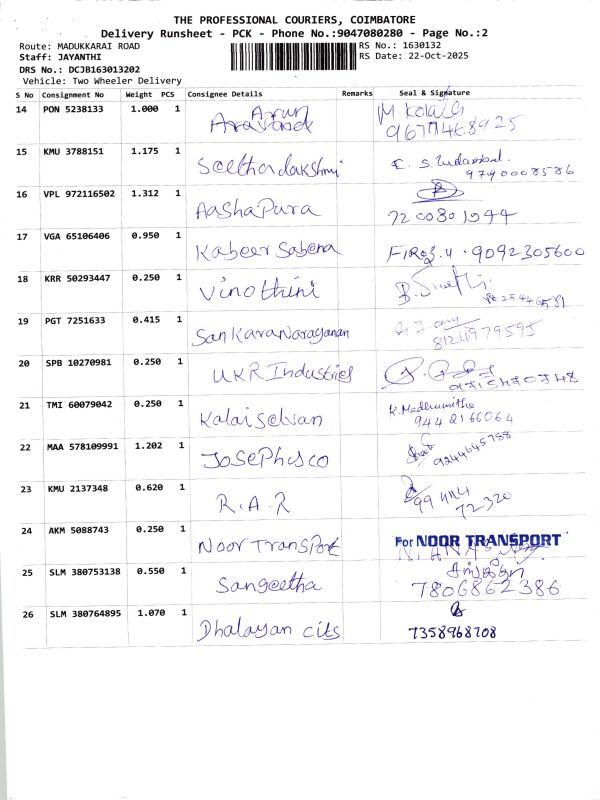 THE PROFESSIONAL COURIERS, COIMBATORE
Delivery Runsheet - PCK - Phone No.:9047080280 - Page No.:2
Route: MADUKKARAI ROAD RS No.: 1630132
Staff: JAYANTHI RS Date: 22-Oct-2025
DRS No.: DCJB163013202
Vehicle: Two Wheeler Delivery
S No Consignment No Weight PCS Consignee Details Remarks Seal & Signature
14 PON 5238133 1.000 1 Arun M.
15 KMU 3788151 1.175 1 Seetha lakshmi 9790008586
16 VPL 972116502 1.312 1 AashaPura 7200801944
17 VGA 65106406 0.950 1 Kabeer Sabena FIROZ.U. 9092305600
18 KRR 50293447 0.250 1 Vinothini B.
19 PGT 7251633 0.415 1 SanKaraNarayanan 8124979595
20 SPB 10270981 0.250 1 UKR Industries
21 TMI 60079042 0.250 1 Kalaiselvan K. Madhumitha
9442166064
22 MAA 578109991 1.202 1 JosePhsco 9244645788
23 KMU 2137348 0.620 1 R.A.R 72320
24 AKM 5088743 0.250 1 Noor Transport For NOOR TRANSPORT
25 SLM 380753138 0.550 1 Sangeetha 7806862386
26 SLM 380764895 1.070 1 Dhalayan cits 7358968708